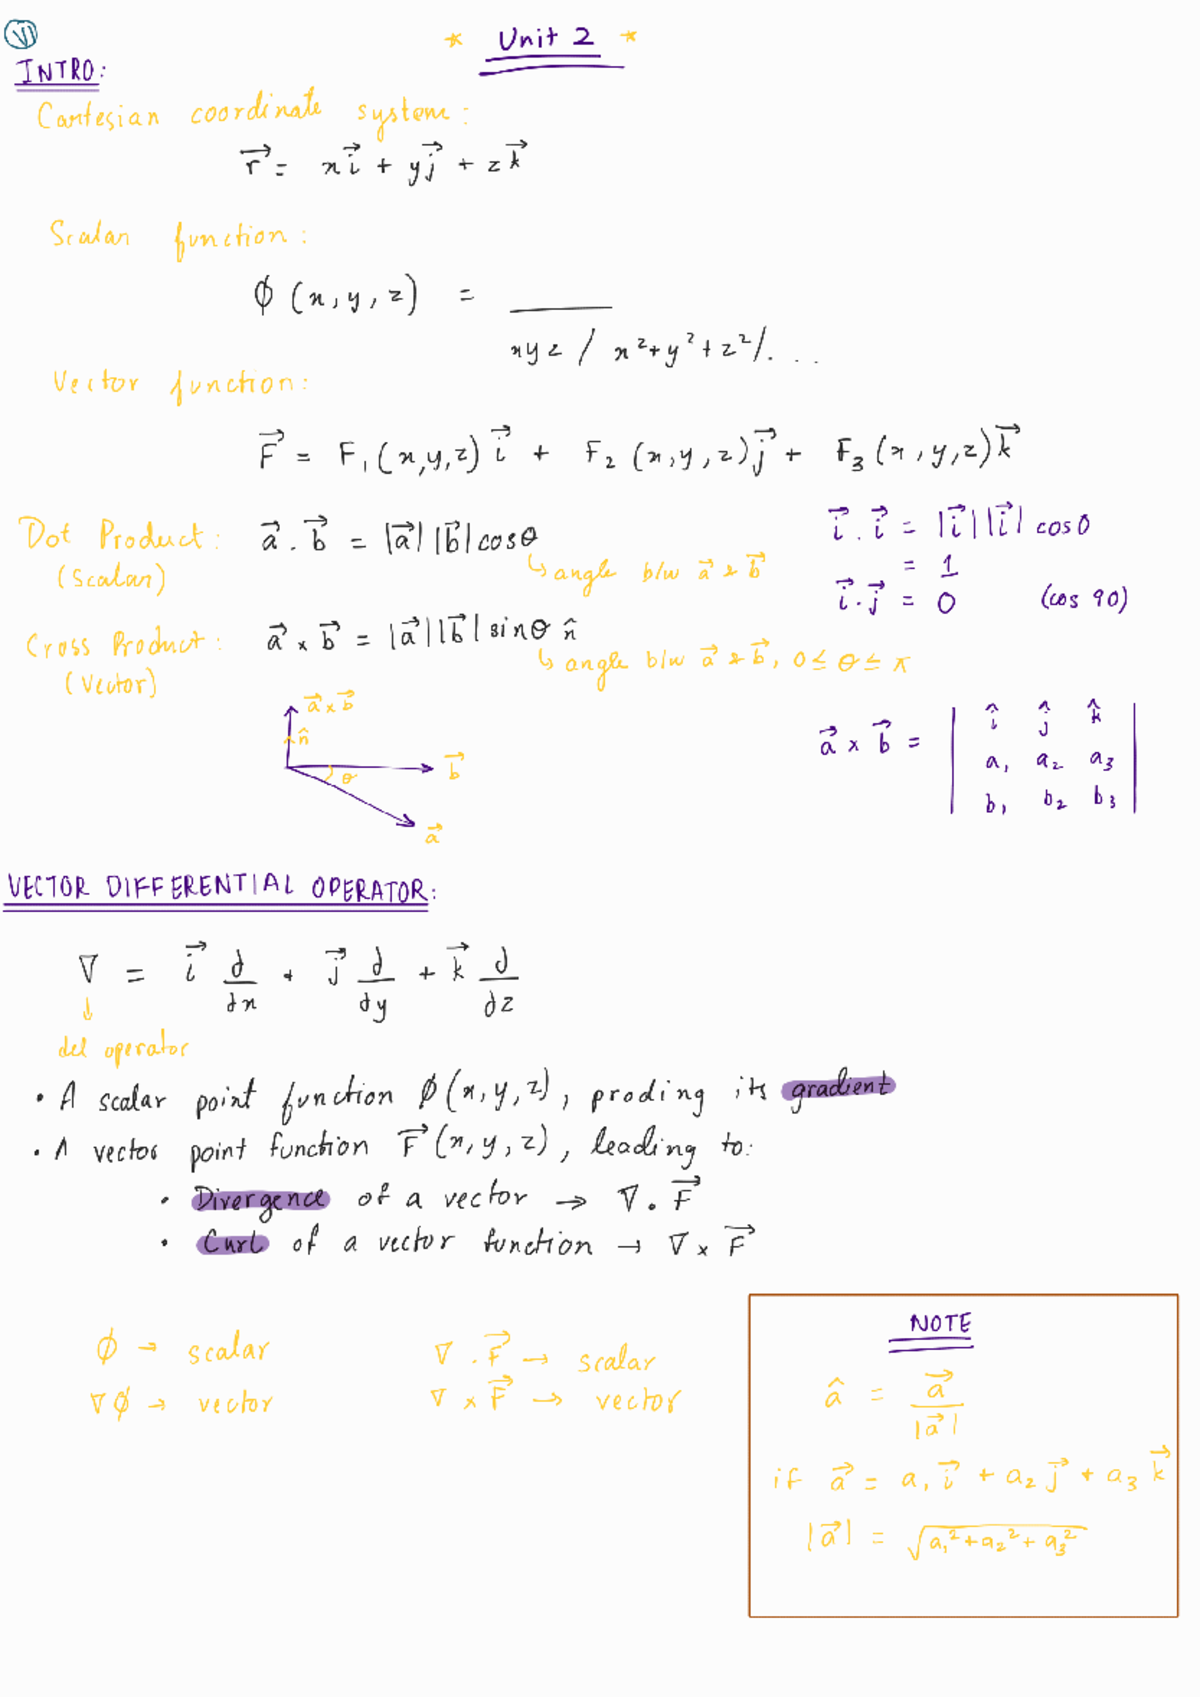 VI
* Unit 2 *
INTRO:
Cartesian coordinate system:
r⃗ = x i⃗ + y j⃗ + z k⃗
Scalar function:
ϕ (x, y, z) = ______
xyz / x² + y² + z² / . . .
Vector function:
F⃗ = F₁ (x, y, z) i⃗ + F₂ (x, y, z) j⃗ + F₃ (x, y, z) k⃗
Dot Product: a⃗ . b⃗ = |a⃗| |b⃗| cosθ
(Scalar) ↳ angle b/w a⃗ & b⃗
i⃗ . i⃗ = |i⃗| |i⃗| cos 0
= 1
i⃗ . j⃗ = 0 (cos 90)
Cross Product: a⃗ × b⃗ = |a⃗| |b⃗| sinθ n̂
(Vector) ↳ angle b/w a⃗ & b⃗, 0 ≤ θ ≤ π
a⃗ × b⃗
n̂
θ b⃗
a⃗
a⃗ × b⃗ = | î ĵ k̂ |
| a₁ a₂ a₃ |
| b₁ b₂ b₃ |
VECTOR DIFFERENTIAL OPERATOR:
∇ = i⃗ ∂/∂x + j⃗ ∂/∂y + k⃗ ∂/∂z
↓
del operator
• A scalar point function ϕ (x, y, z), proding its gradient
• A vector point function F⃗ (x, y, z), leading to:
• Divergence of a vector → ∇ . F⃗
• Curl of a vector function → ∇ × F⃗
ϕ → scalar
∇ϕ → vector
∇ . F⃗ → scalar
∇ × F⃗ → vector
NOTE
â = a⃗ / |a⃗|
if a⃗ = a₁ i⃗ + a₂ j⃗ + a₃ k⃗
|a⃗| = √(a₁² + a₂² + a₃²)